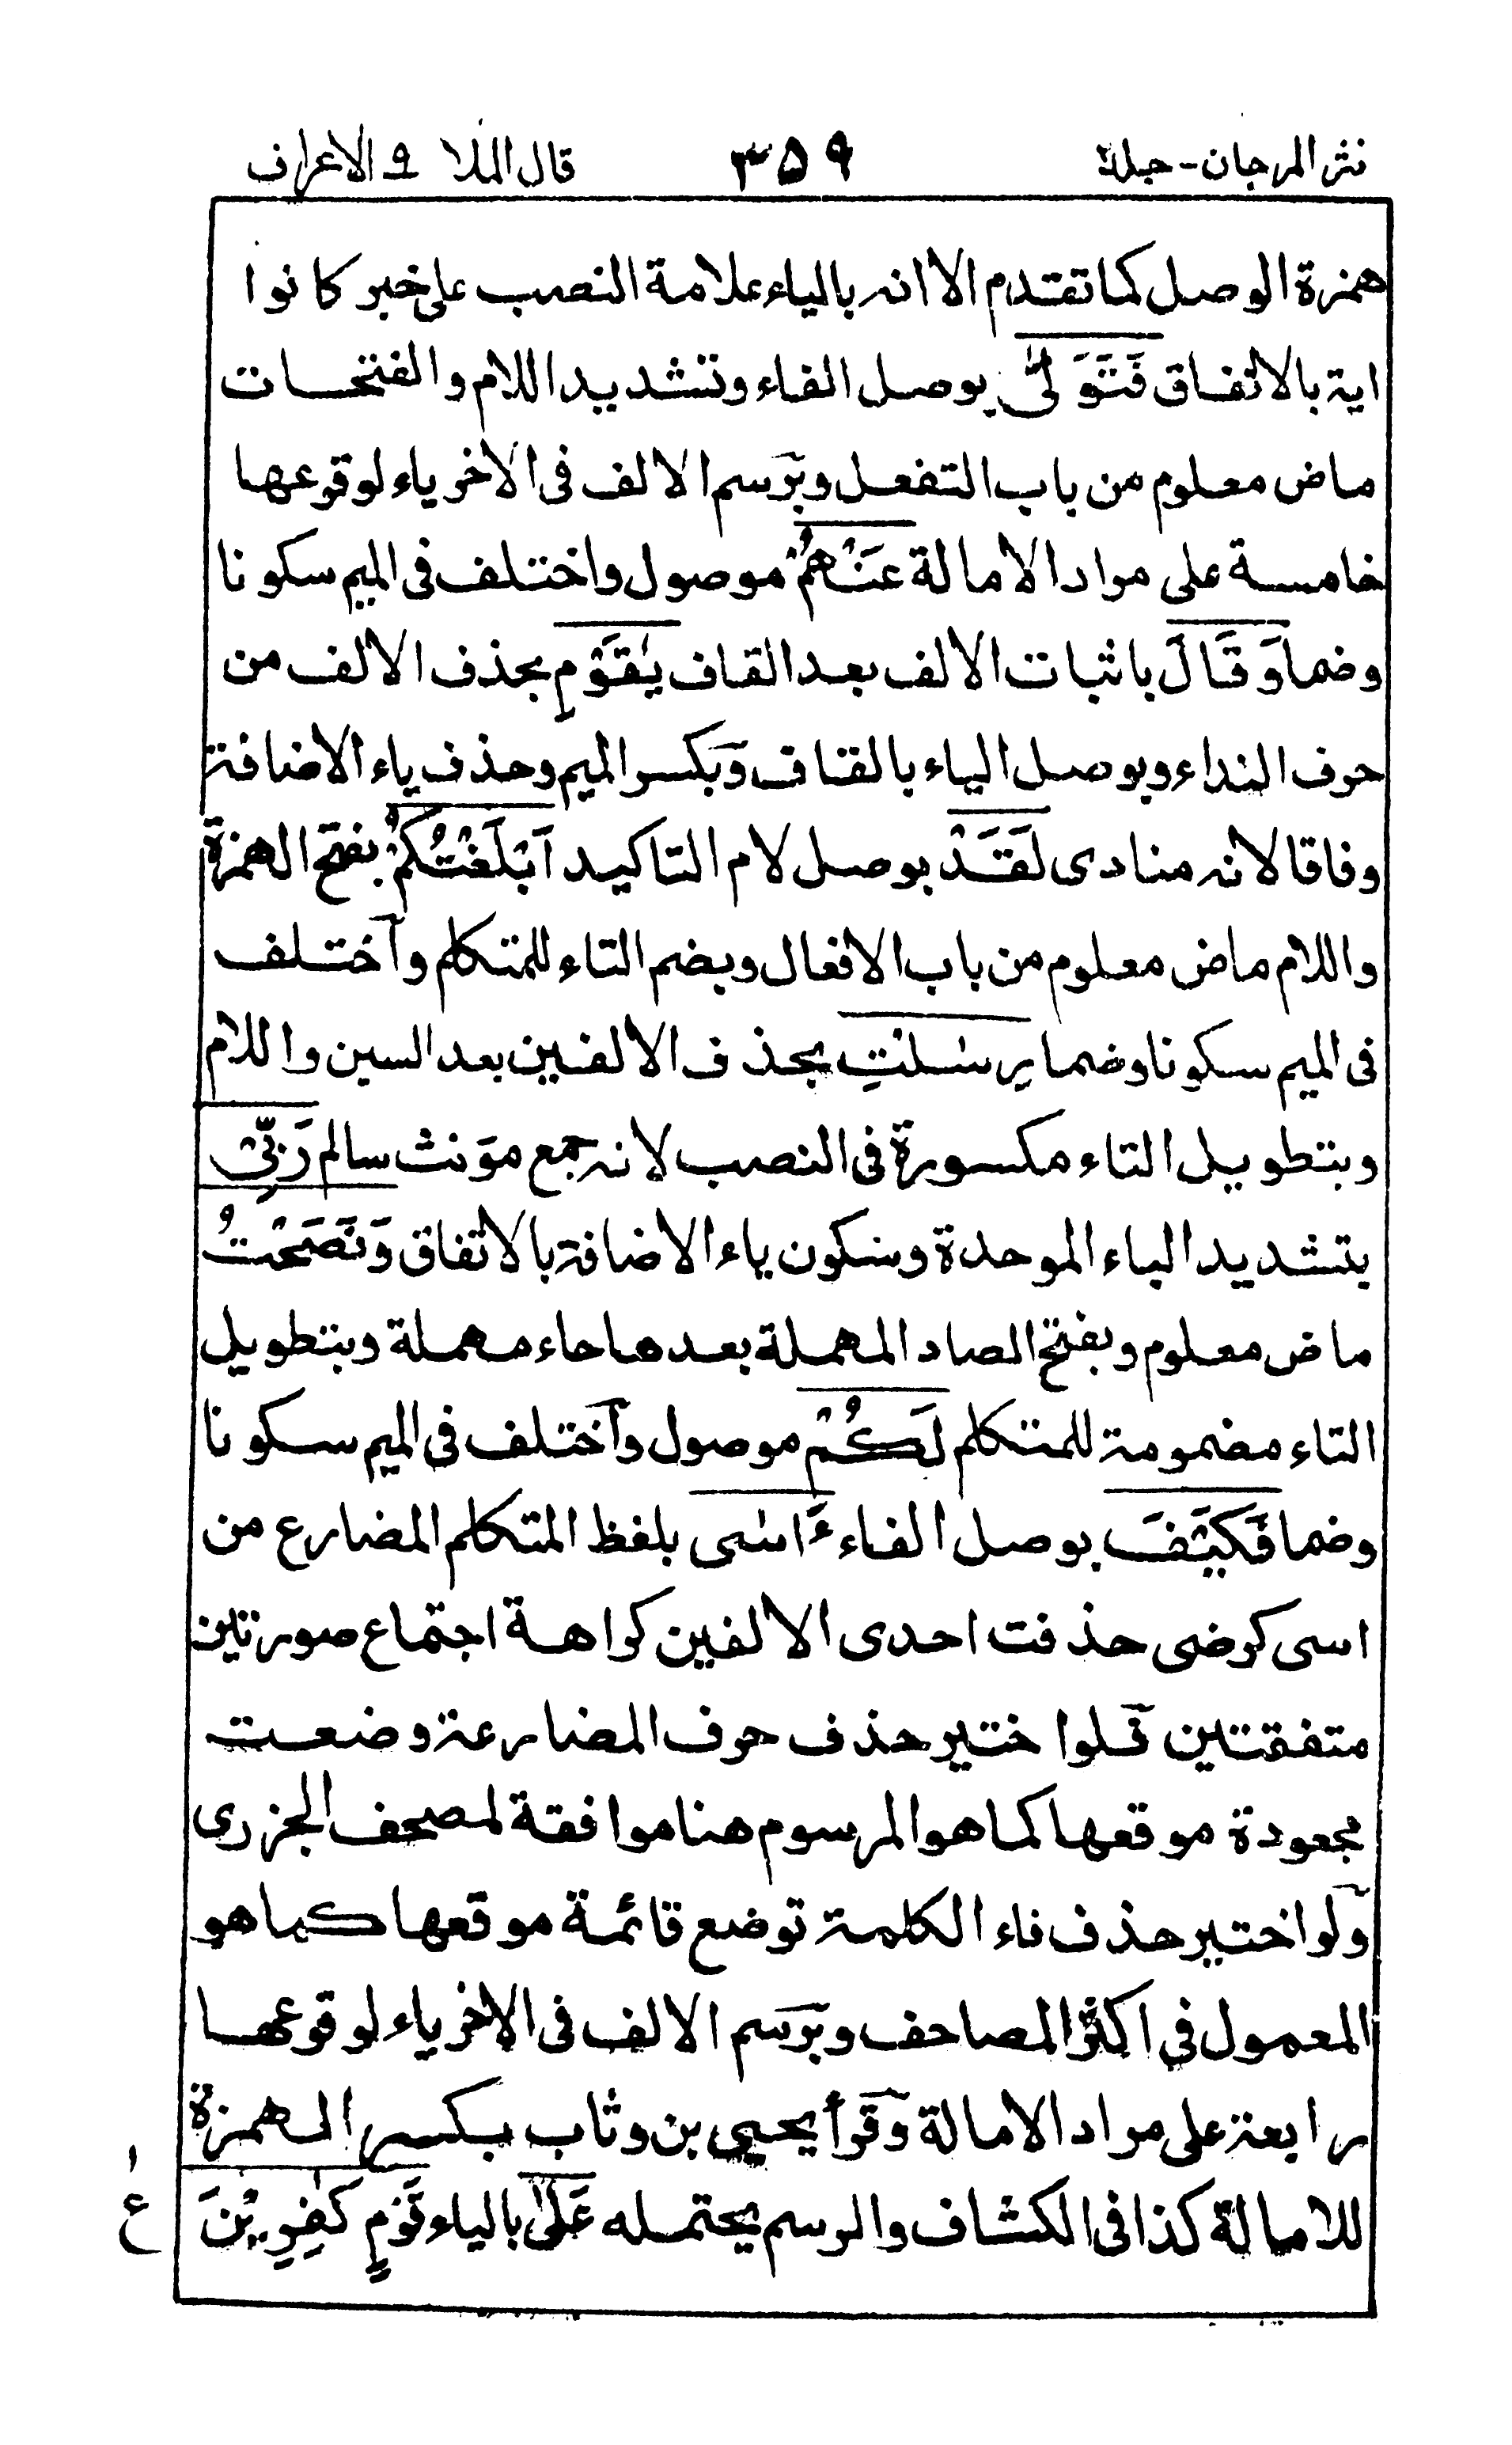 نثر المرجان - جلد ٢ ٣٥٩ قال الملا ٩ الاعراف
همزة الوصل كما تقدم الا انه بالياء علامة النصب على خبر كانوا
اية بالاتفاق فَتَوَلّٰى بوصل الفاء وتشديد اللام والفتحات
ماض معلوم من باب التفعل وبرسم الالف فى الاخر ياء لوقوعها
خامسة على مراد الامالة عَنْهُمْ موصول واختلف فى الميم سكونا
وضما وَقَالَ باثبات الالف بعد القاف يٰقَوْمِ بحذف الالف من
حرف النداء وبوصل الياء بالقاف وبكسر الميم وحذف ياء الاضافة
وفاقا لانه منادى لَقَدْ بوصل لام التاكيد اَبْلَغْتُكُمْ بفتح الهمزة
واللام ماض معلوم من باب الافعال وبضم التاء للمتكلم واختلف
فى الميم سكونا وضما رِسٰلٰتِ بحذف الالفين بعد السين واللام
وبتطويل التاء مكسورة فى النصب لانه جمع مؤنث سالم رَبِّىْ
بتشديد الباء الموحدة وسكون ياء الاضافة بالاتفاق وَنَصَحْتُ
ماض معلوم وبفتح الصاد المهملة بعدها حاء مهملة وبتطويل
التاء مضمومة للمتكلم لَكُمْ موصول واختلف فى الميم سكونا
وضما فَكَيْفَ بوصل الفاء ءَاسٰى بلفظ المتكلم المضارع من
اسى كرضى حذفت احدى الالفين كراهة اجتماع صورتين
متفقتين فلو اختير حذف حرف المضارعة وضعت
مجعودة موقعها كما هو المرسوم هنا موافقة لمصحف الجزرى
ولو اختير حذف فاء الكلمة توضع قائمة موقعها كما هو
المعمول في اكثر المصاحف وبرسم الالف فى الاخر ياء لوقوعها
رابعة على مراد الامالة وقرأ يحيى بن وثاب بكسر الهمزة
للامالة كذا فى الكشاف والرسم يحتمله عَلٰى بالياء قَوْمٍ كٰفِرِيْنَ
ع